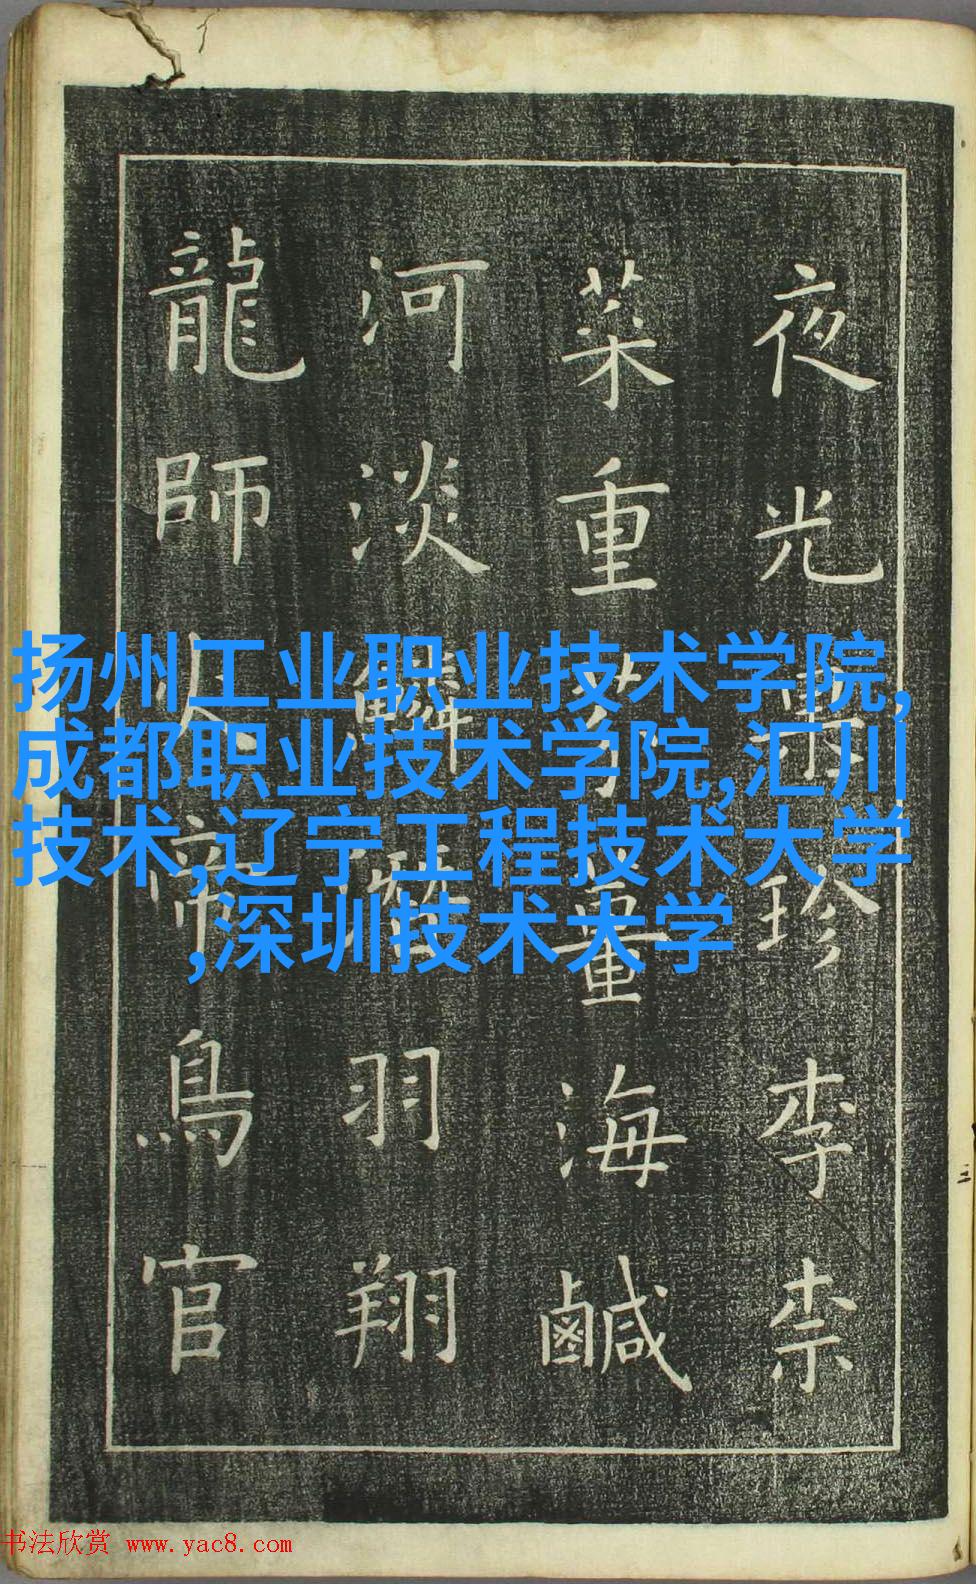 夜光果珍李柰
菜重芥薑海鹹
河淡鱗潛羽翔
龍師火帝鳥官
扬州工业职业技术学院,
成都职业技术学院,汇川
技术,辽宁工程技术大学
,深圳技术大学
书法欣赏 www.yac8.com